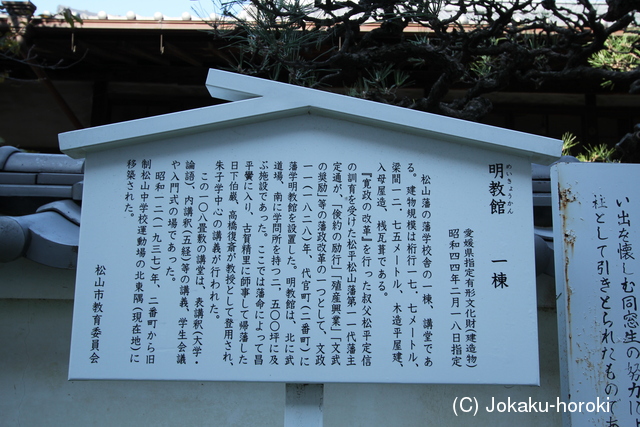 明教館　一棟
めいきょうかん
愛媛県指定有形文化財(建造物)
昭和四四年二月一八日指定
松山藩の藩学校舎の一棟、講堂であ
る。建物規模は桁行一七、七メートル、
梁間一二、七五メートル、木造平屋建、
入母屋造、桟瓦葺である。
『寛政の改革』を行った叔父松平定信
の訓育を受けた松平松山藩第一一代藩主
定通が、「倹約の励行」「殖産興業」「文武
の奨励」等の藩政改革の一つとして、文政
一一(一八二八)年、代官町(二番町)に
藩学明教館を設置した。明教館は、北に武
道場、南に学問所を持つ二、五〇〇坪に及
ぶ施設であった。ここでは藩命によって昌
平黌に入り、古賀精里に師事して帰藩した
日下伯巌、高橋復斎が教授として登用され、
朱子学中心の講義が行われた。
この一〇八畳敷の講堂は、表講釈(大学・
論語)、内講釈(五経)等の講義、学生会議
や入門式の場であった。
昭和一二(一九三七)年、二番町から旧
制松山中学校運動場の北東隅(現在地)に
移築された。
松山市教育委員会
い出を懐しむ同窓生の努力に
社として引きとられたものであ
(C) Jokaku-horoki